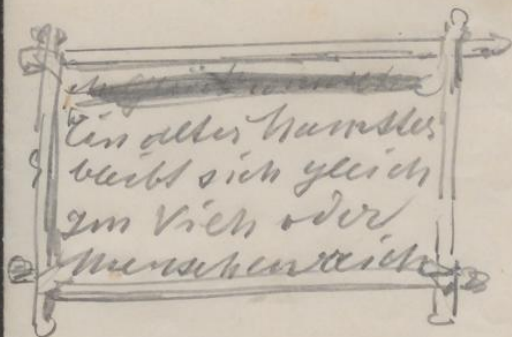 Ein alter Hamster
bleibt sich gleich
im Vieh oder
Menschenreich